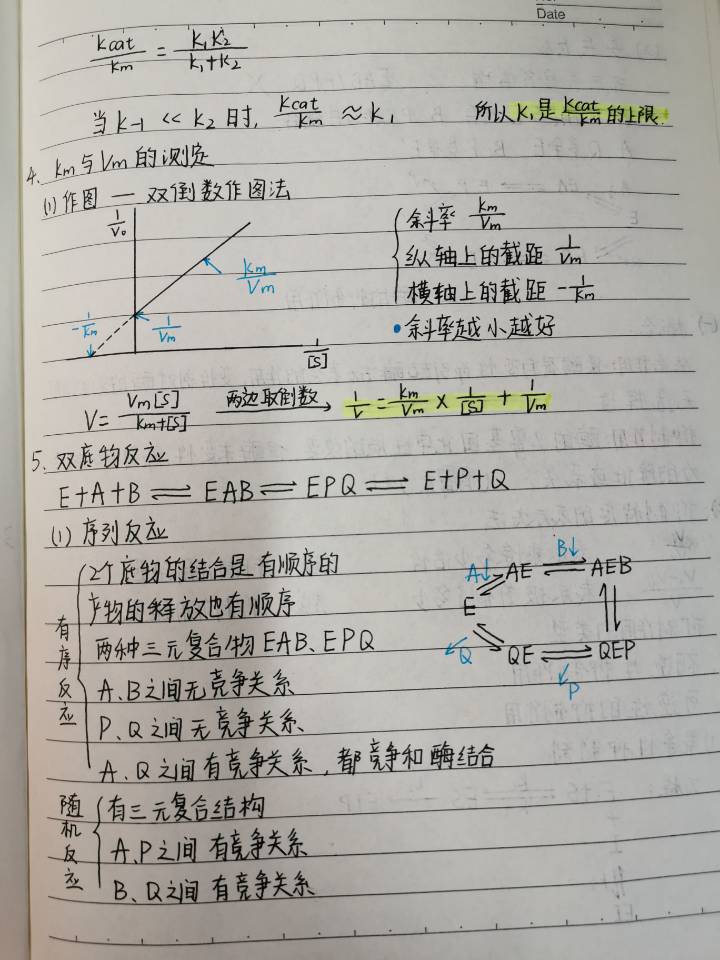 No.
Date
kcat/km = k₁k₂/k₁+k₂
当 k-1 << k₂时, kcat/km ≈ k₁ 所以k₁是 kcat/km 的上限.
4. km与Vm的测定
(1)作图 — 双倒数作图法
1/V₀
km/Vm
-1/km
1/Vm
1/[S]
斜率 km/Vm
纵轴上的截距 1/Vm
横轴上的截距 -1/km
•斜率越小越好
V= Vm[S]/km+[S] 两边取倒数→ 1/V = km/Vm × 1/[S] + 1/Vm
5. 双底物反应
E+A+B ⇌ EAB ⇌ EPQ ⇌ E+P+Q
(1) 序列反应
有序反应
2个底物的结合是有顺序的
产物的释放也有顺序
两种三元复合物 EAB、EPQ
A、B之间无竞争关系
P、Q之间无竞争关系
A、Q之间有竞争关系,都竞争和酶结合
A↓ B↓
E ⇌ AE ⇌ AEB
E ⇌ QE ⇌ QEP
Q P
随机反应
有三元复合结构
A、P之间有竞争关系
B、Q之间有竞争关系